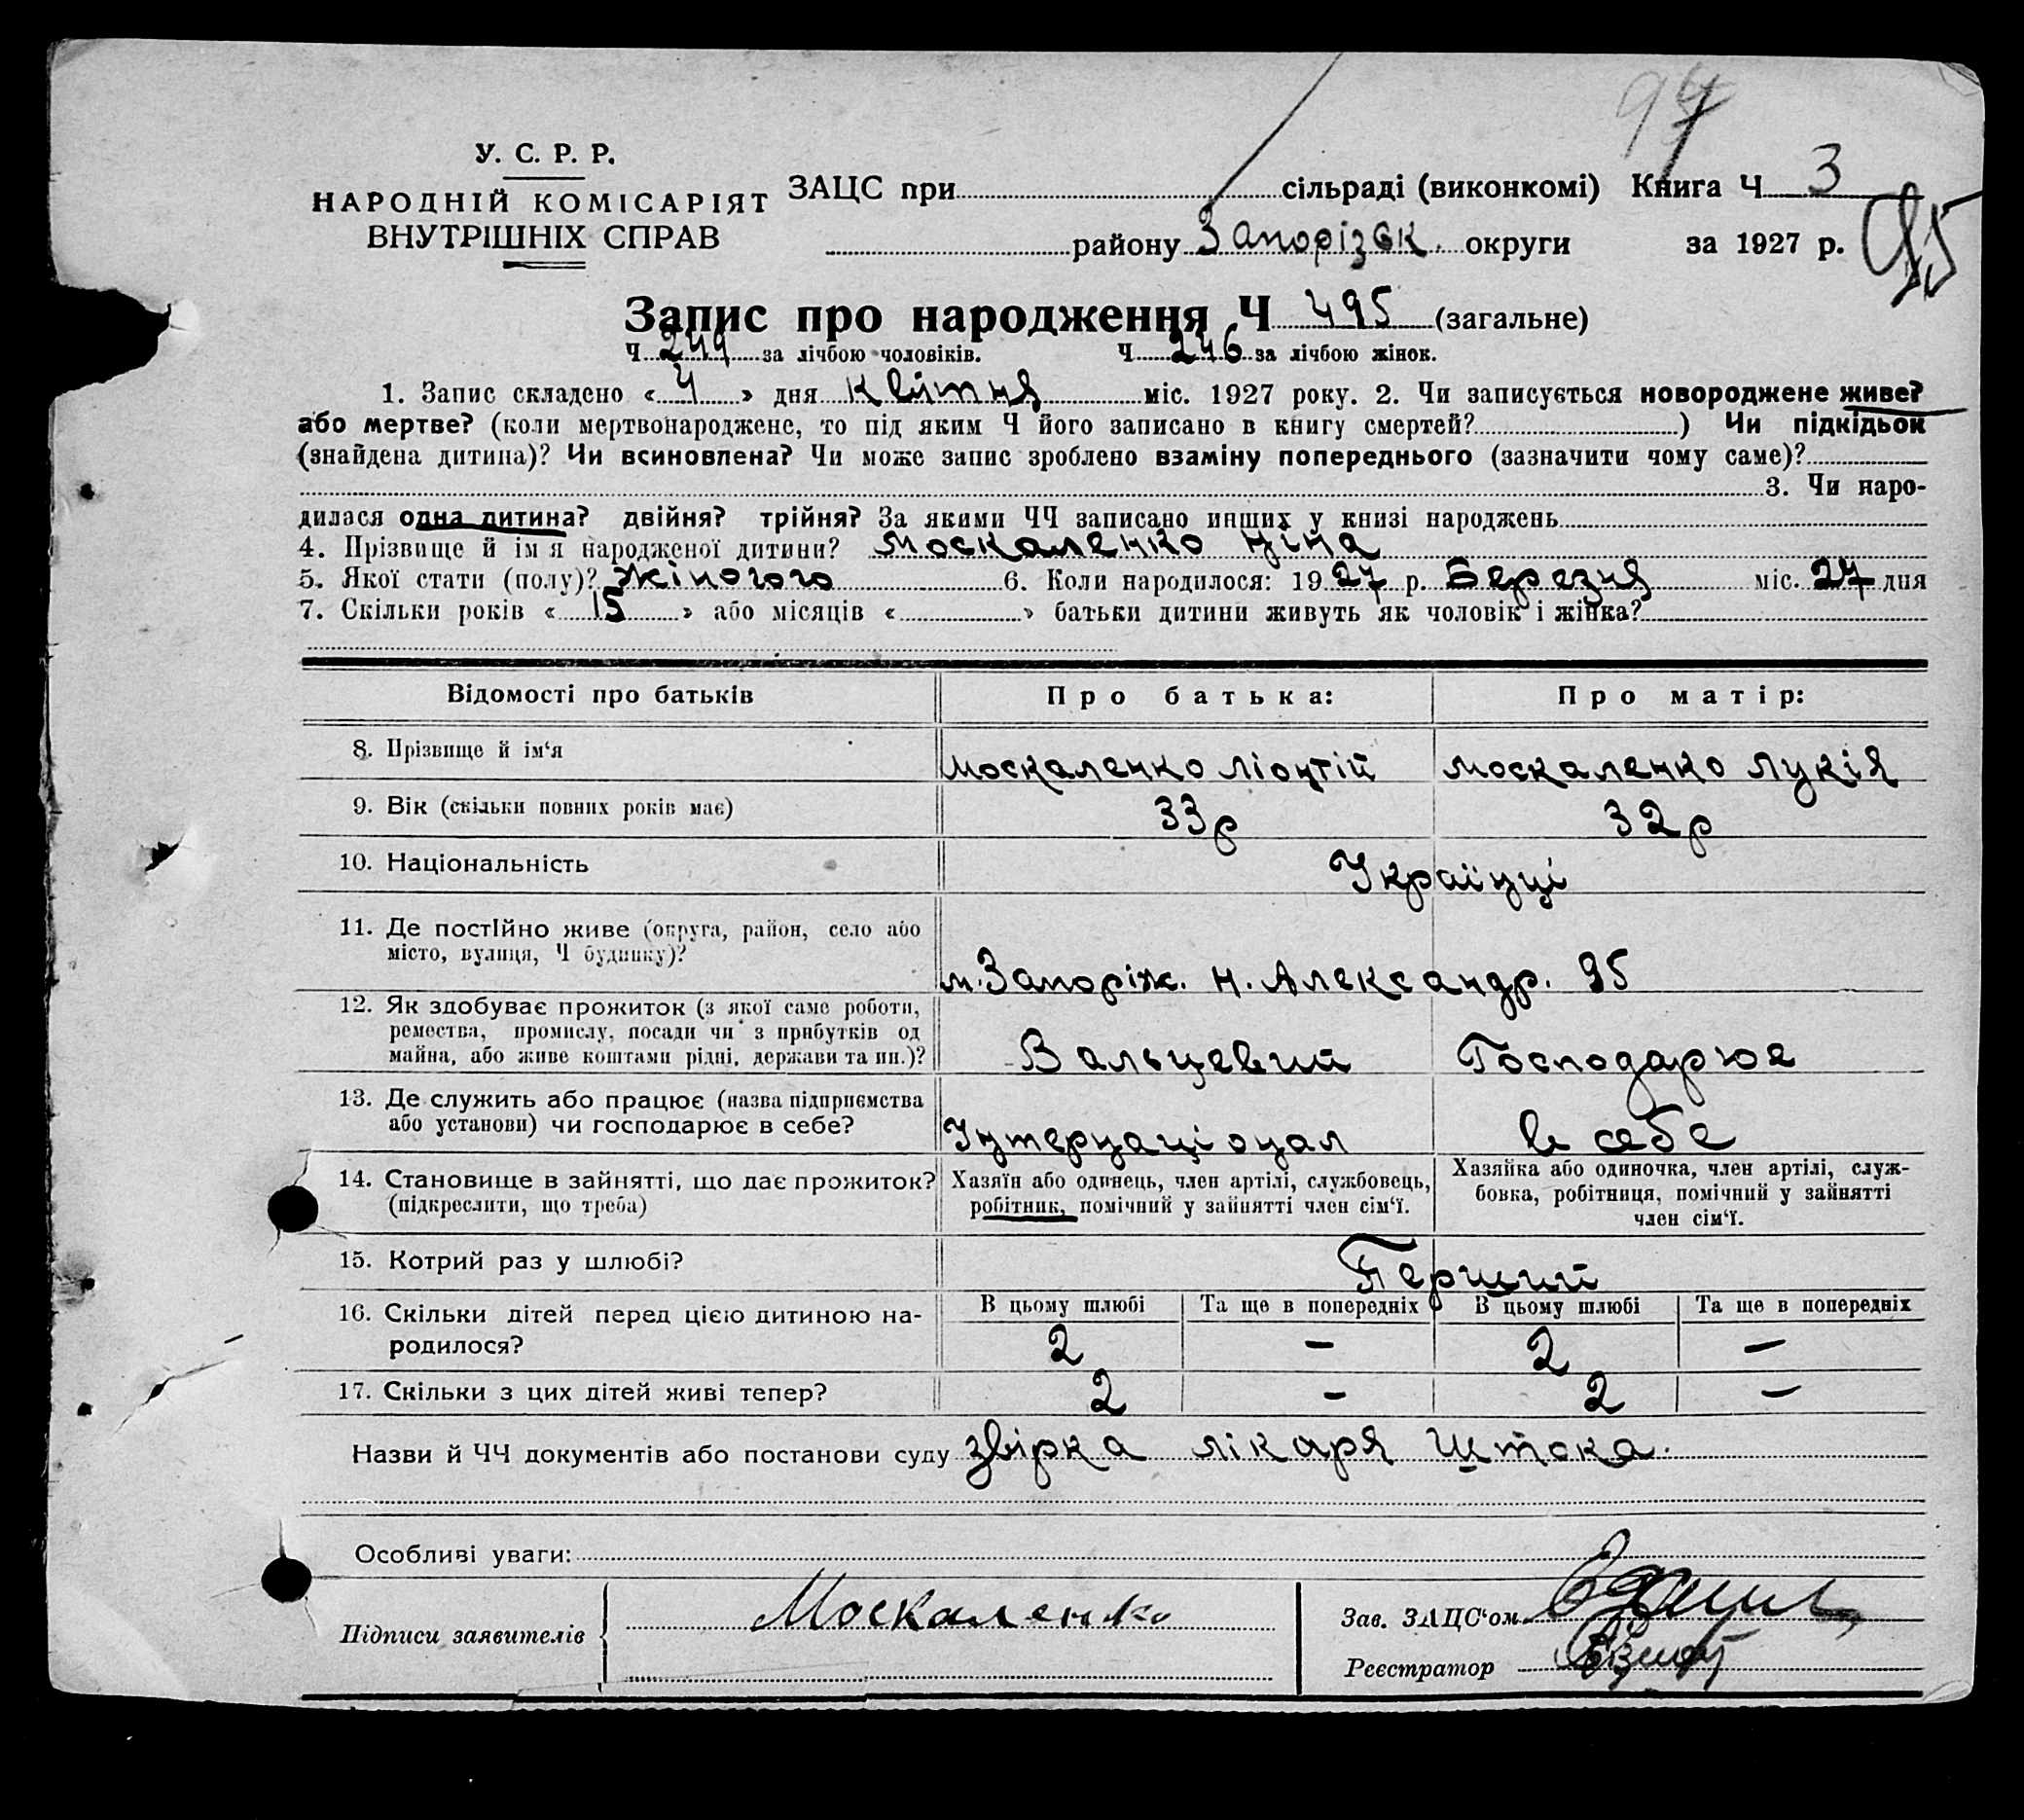 97
У. С. Р. Р.
НАРОДНІЙ КОМІСАРІЯТ
ВНУТРІШНІХ СПРАВ
ЗАЦС при сільраді (виконкомі) Книга Ч 3
району Запорізьк. округи за 1927 р. 95
Запис про народження Ч 495 (загальне)
Ч 249 за лічбою чоловіків. Ч 246 за лічбою жінок.
1. Запис складено « 4 » дня квітня міс. 1927 року. 2. Чи записується новороджене живе?
або мертве? (коли мертвонароджене, то під яким Ч його записано в книгу смертей? ) Чи підкідьок
(знайдена дитина)? Чи всиновлена? Чи може запис зроблено взаміну попереднього (зазначити чому саме)?
3. Чи наро-
дилася одна дитина? двійня? трійня? За якими ЧЧ записано инших у книзі народжень
4. Прізвище й ім'я народженої дитини? Москаленко Ніна
5. Якої стати (полу)? Жіногого 6. Коли народилося: 1927 р. Березня міс. 27 дня
7. Скільки років « 15 » або місяців « » батьки дитини живуть як чоловік і жінка?
Відомості про батьків Про батька: Про матір:
8. Прізвище й ім'я Москаленко Ліонтій Москаленко Лукія
9. Вік (скільки повних років має) 33 р 32 р
10. Національність Українці
11. Де постійно живе (округа, район, село або
місто, вулиця, Ч будинку)? м. Запоріж. Н. Александр. 95
12. Як здобуває прожиток (з якої саме роботи,
ремества, промислу, посади чи з прибутків од
майна, або живе коштами рідні, держави та ин.)? Вальцевий Господарює
13. Де служить або працює (назва підприємства
або установи) чи господарює в себе? Інтернаціонал в себе
14. Становище в зайнятті, що дає прожиток?
(підкреслити, що треба)
Хазяїн або одинець, член артілі, службовець,
робітник, помічний у зайнятті член сім'ї.
Хазяйка або одиночка, член артілі, служ-
бовка, робітниця, помічний у зайнятті
член сім'ї.
15. Котрий раз у шлюбі? Перший
16. Скільки дітей перед цією дитиною на-
родилося?
В цьому шлюбі Та ще в попередніх В цьому шлюбі Та ще в попередніх
2 – 2 –
17. Скільки з цих дітей живі тепер? 2 – 2 –
Назви й ЧЧ документів або постанови суду звірка лікаря Штока.
Особливі уваги:
Підписи заявителів Москаленко
Зав. ЗАЦС'ом
Реєстратор